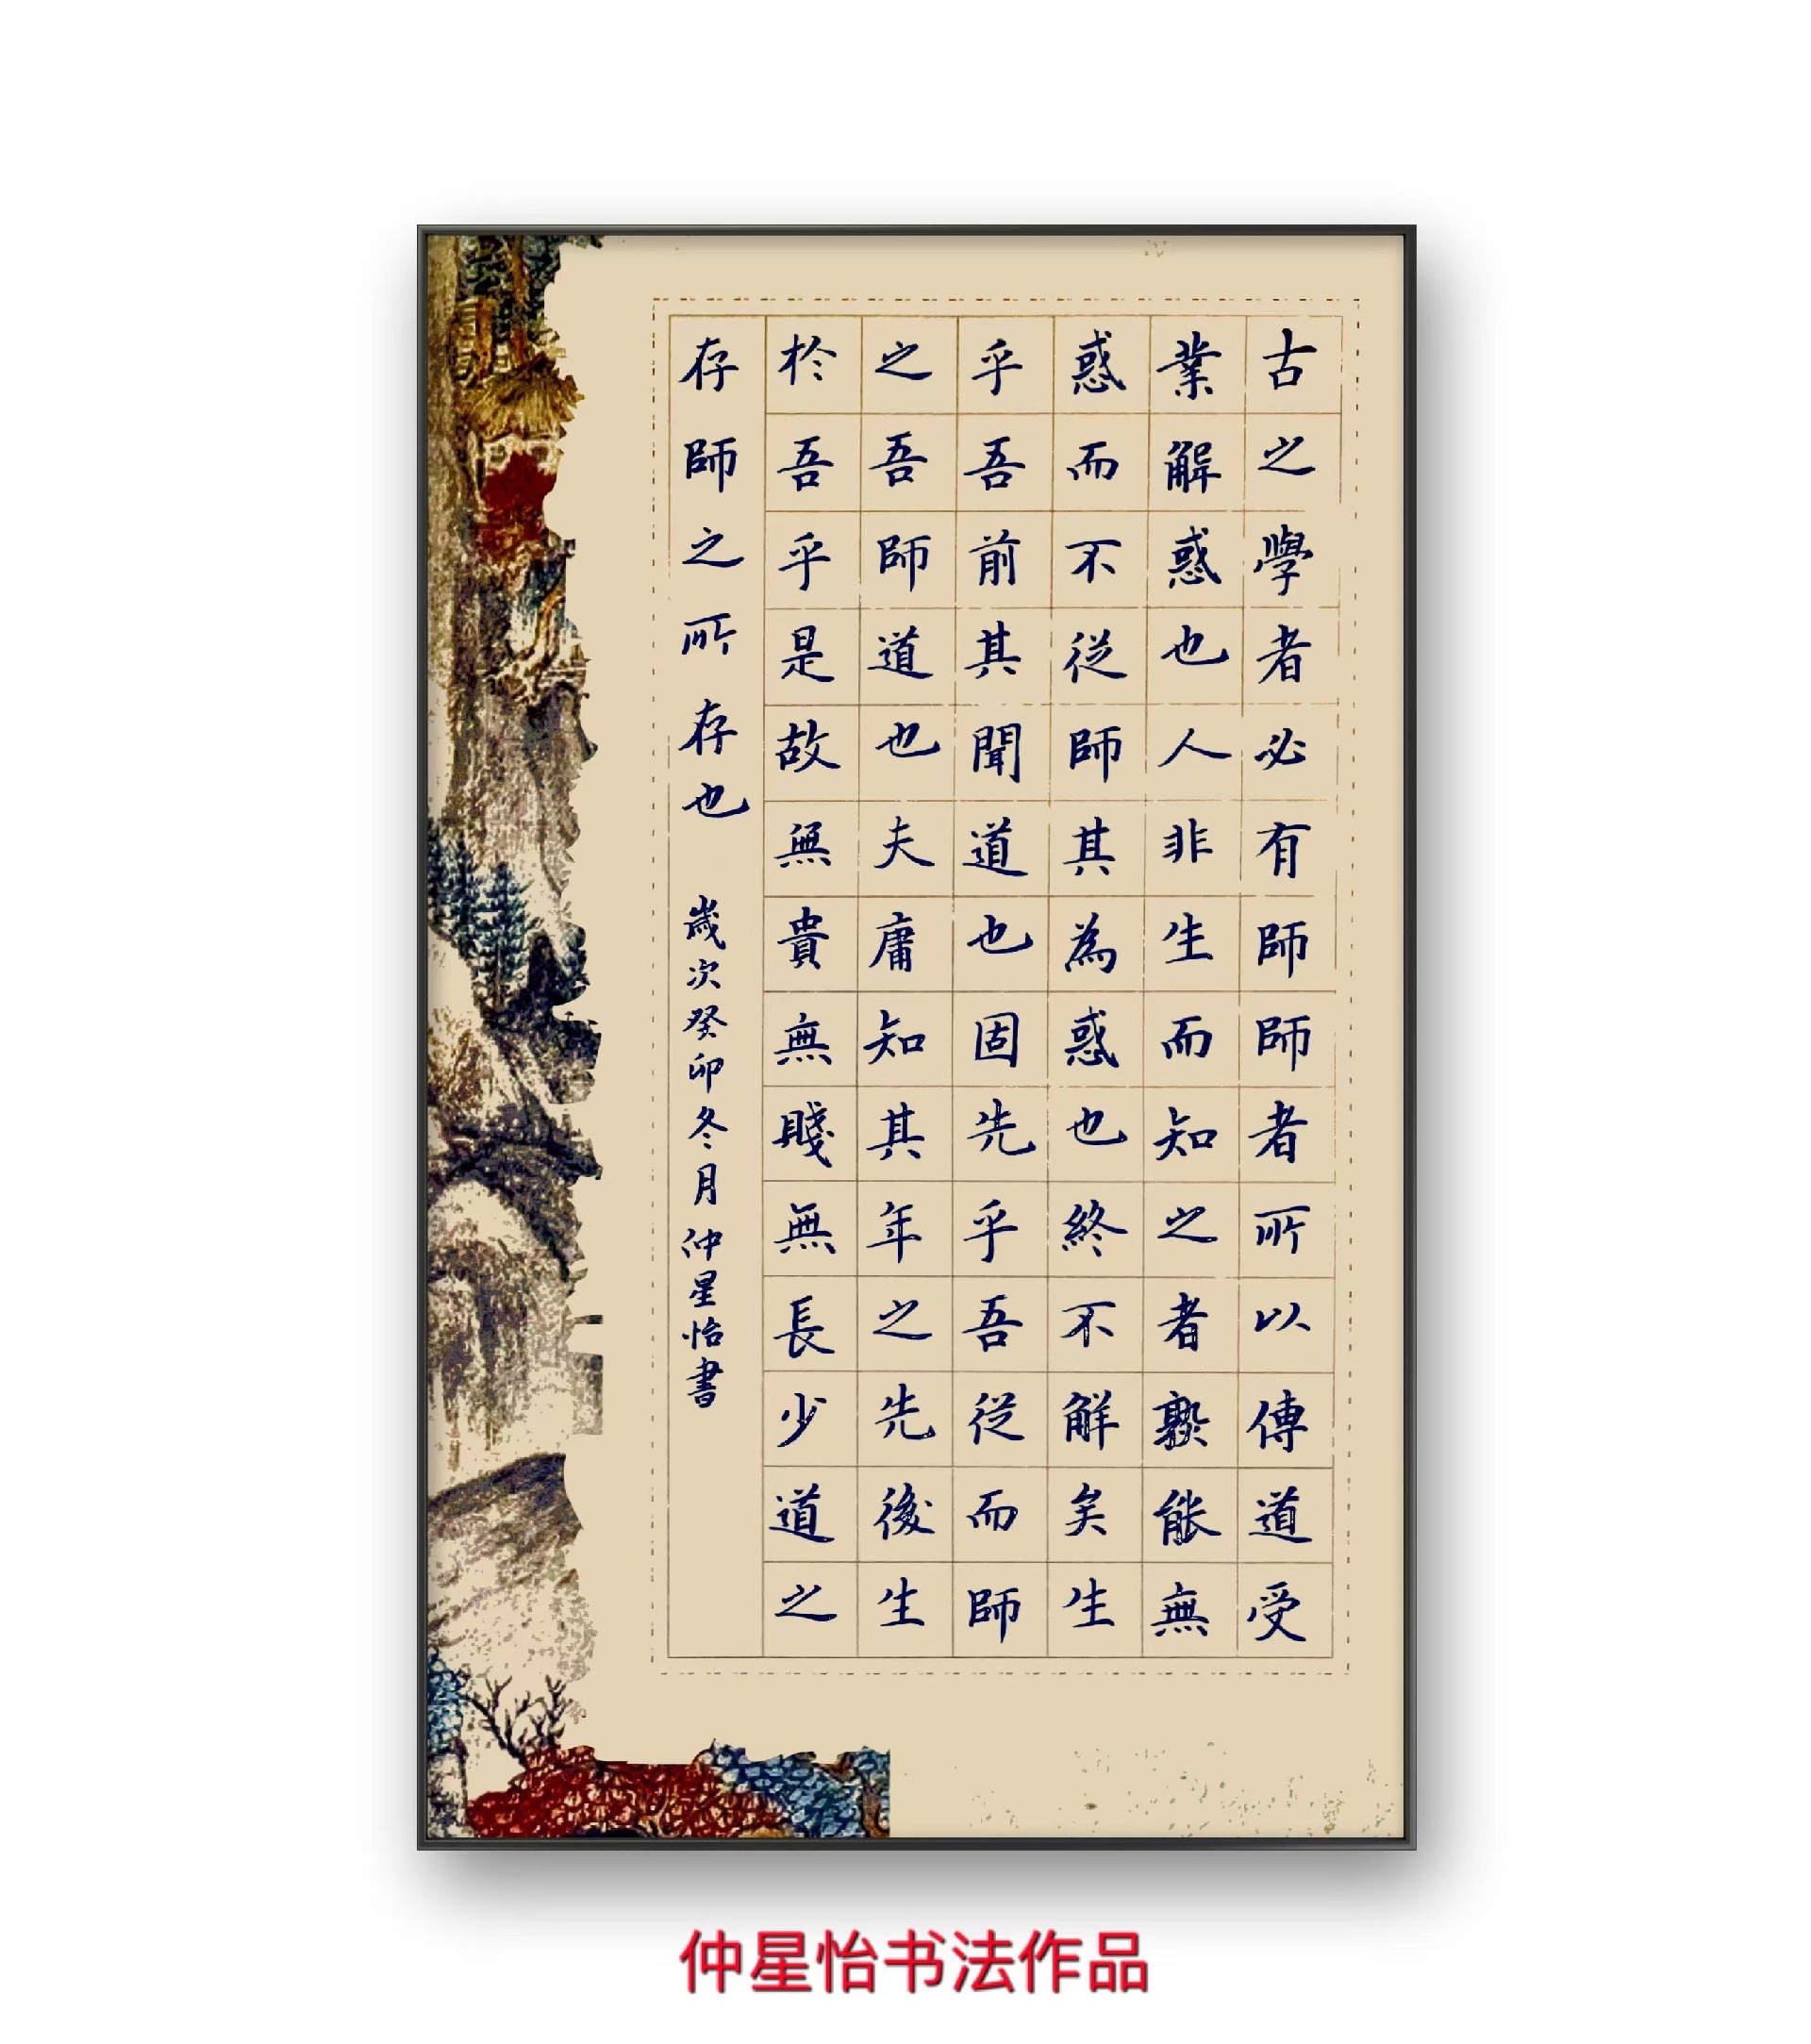 古之學者必有師師者所以傳道受
業解惑也人非生而知之者孰能無
惑而不從師其為惑也終不解矣生
乎吾前其聞道也固先乎吾從而師
之吾師道也夫庸知其年之先後生
於吾乎是故無貴無賤無長少道之
存師之所存也 歲次癸卯冬月仲星怡書
仲星怡书法作品